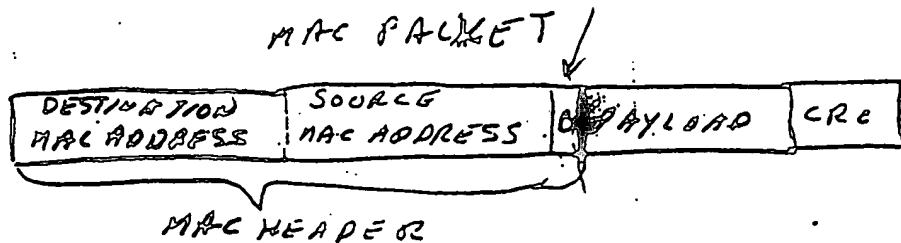 MAC PACKET
DESTINATION
MAC ADDRESS
SOURCE
MAC ADDRESS
PAYLOAD
CRC
MAC HEADER